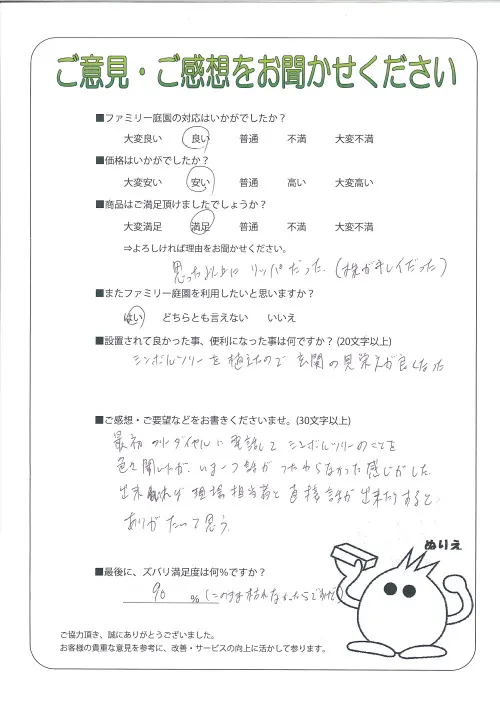 ご意見・ご感想をお聞かせください
■ファミリー庭園の対応はいかがでしたか?
大変良い 良い 普通 不満 大変不満
■価格はいかがでしたか?
大変安い 安い 普通 高い 大変高い
■商品はご満足頂けましたでしょうか?
大変満足 満足 普通 不満 大変不満
⇒よろしければ理由をお聞かせください。
思った以上に リッパだった。(株がキレイだった)
■またファミリー庭園を利用したいと思いますか?
はい どちらとも言えない いいえ
■設置されて良かった事、便利になった事は何ですか? (20文字以上)
シンボルツリーを植えたので 玄関の見栄えが良くなった
■ご感想・ご要望などをお書きくださいませ。(30文字以上)
最初 フリーダイヤルに電話して シンボルツリーのことを
色々聞いたが、いま一つ話が つたわらなかった感じがした。
出来れば 現場担当者と直接話が出来たりすると
ありがたいって思う。
ぬりえ
■最後に、ズバリ満足度は何%ですか?
90 % (このまま枯れなかったら
ご協力頂き、誠にありがとうございました。
お客様の貴重な意見を参考に、改善・サービスの向上に活かして参ります。